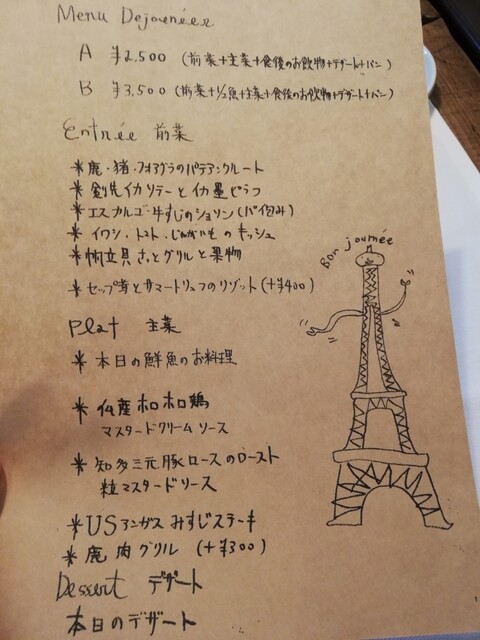 Menu Dejeunées
A ¥2.500 (前菜+主菜+食後のお飲物+デザート+パン)
B ¥3.500 (前菜+1/2魚+主菜+食後のお飲物+デザート+パン)
Entrée 前菜
*鹿・猪・フォアグラのパテアンクルート
*剣先イカソテーとイカ墨ピラフ
*エスカルゴ・牛すじのショソン(パイ包み)
*イワシ・トマト・じゃがいものキッシュ
*帆立貝さっとグリルと果物
*セップ茸とサマートリュフのリゾット(+¥400)
Bon journée
Plat 主菜
*本日の鮮魚のお料理
*仏産ホロホロ鶏
マスタードクリームソース
*知多三元豚ロースのロースト
粒マスタードソース
*USアンガスみすじステーキ
*鹿肉グリル (+¥300)
Dessert デザート
本日のデザート